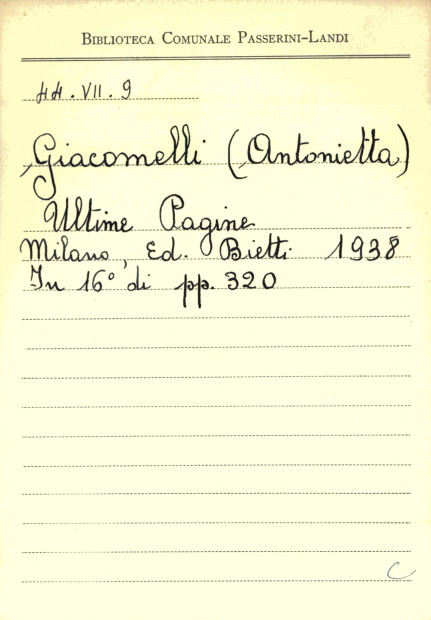 BIBLIOTECA COMUNALE PASSERINI-LANDI
44.VII.9
Giacomelli (Antonietta)
Ultime Pagine
Milano, Ed. Bietti 1938
In 16° di pp. 320
C